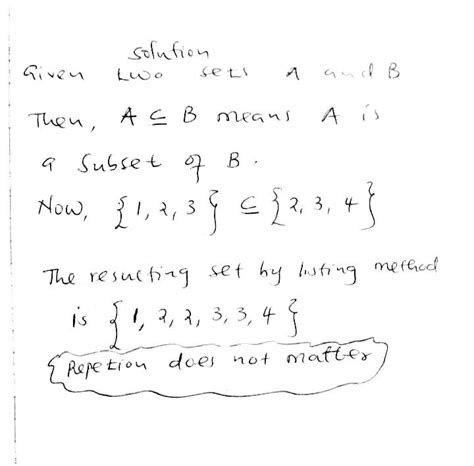 solution
Given two sets A and B
Then, A ⊆ B means A is
a subset of B.
Now, {1, 2, 3} ⊆ {2, 3, 4}
The resulting set by listing method
is {1, 2, 2, 3, 3, 4}
{Repetion does not matter}